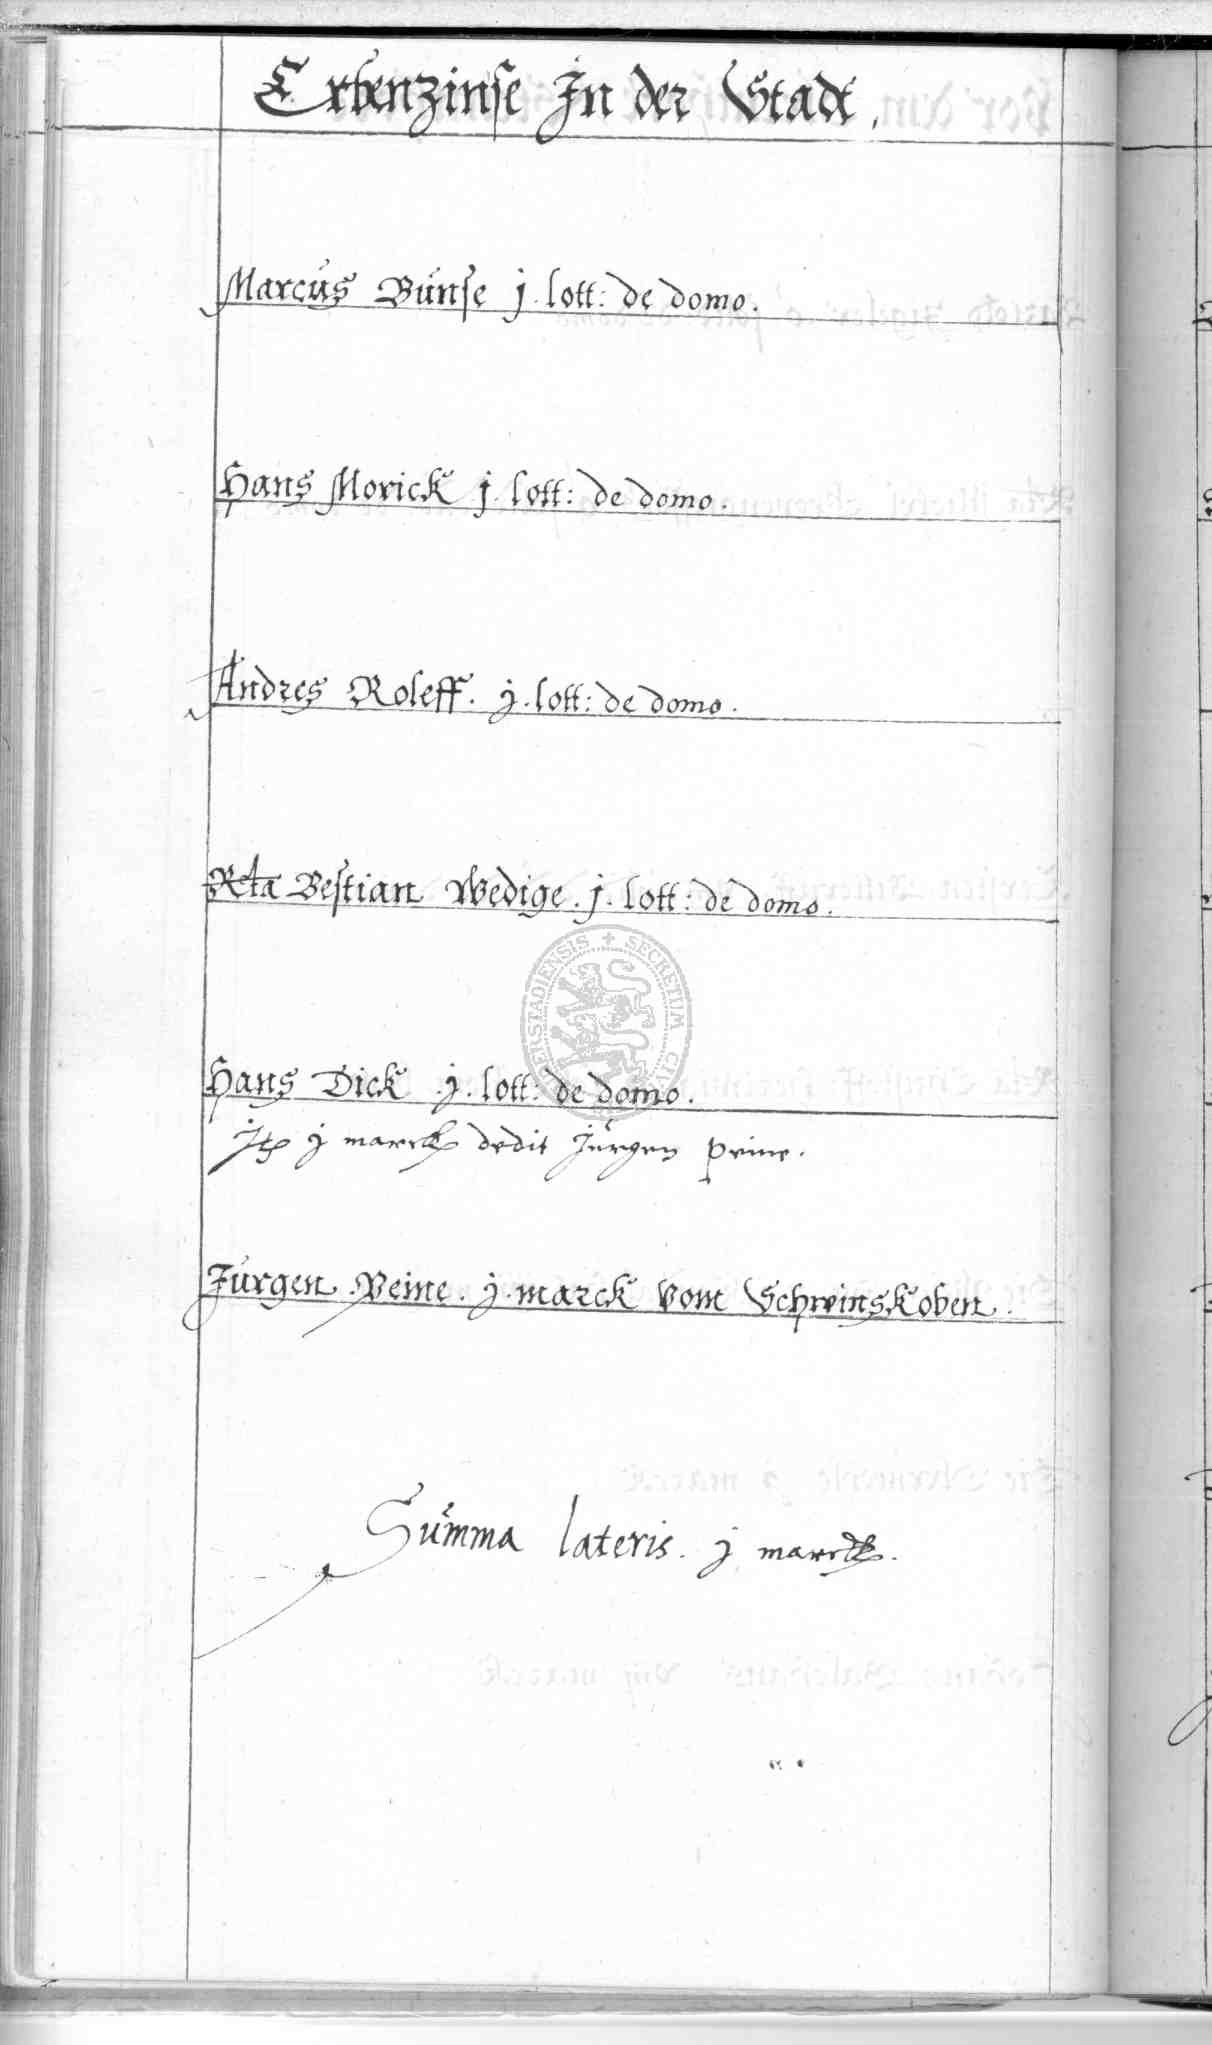 Erbenzinse In der Stadt.
Marcus Bunse j. lott: de domo.
Hans Morick j. lott: de domo.
Andres Roleff. j. lott: de domo.
Rcta Bestian Wedige. j. lott: de domo.
Hans Dick j. lott: de domo.
j marck dedit Jurgen Peine.
Jurgen Peine. j. marck vom Schweinskoben.
Summa lateris. j marck.
SECRETUM